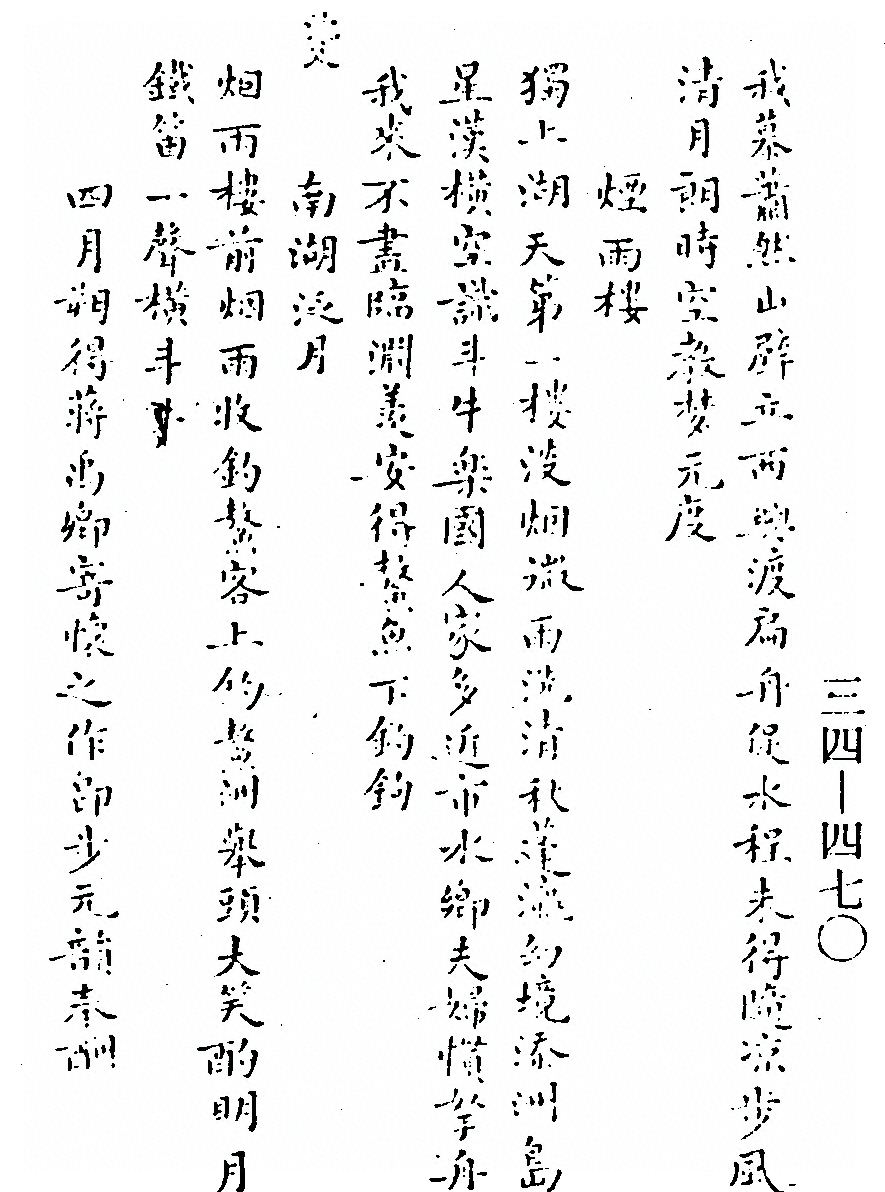 三四—四七〇
我慕蕭然山壁立西興渡扁舟促水程未得曉涼步風
清月朗時空教梦元度
煙雨樓
獨上湖天第一楼淡烟微雨洗清秋蓬瀛幻境添洲島
星漢橫空識斗牛樂國人家多近市水鄉夫婦慣拏舟
我來不盡臨淵羨安得鰲魚下釣鉤
南湖泛月
烟雨樓前烟雨收釣鰲客上釣鰲洲舉頭大笑酌明月
鐵笛一聲橫斗牛
四月朔得蔣禹卿寄懷之作即步元韻奉酬